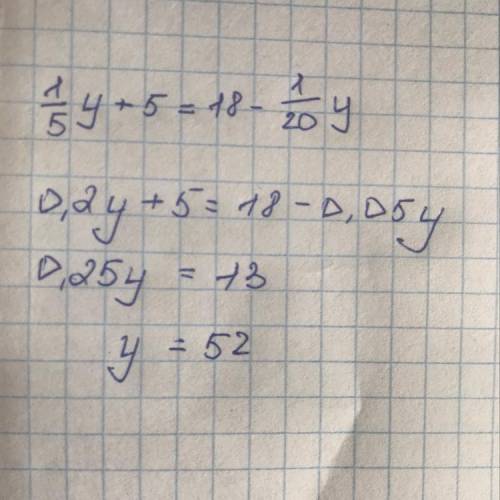 1/5 y + 5 = 18 - 1/20 y
0,2y + 5 = 18 - 0,05y
0,25y = 13
y = 52